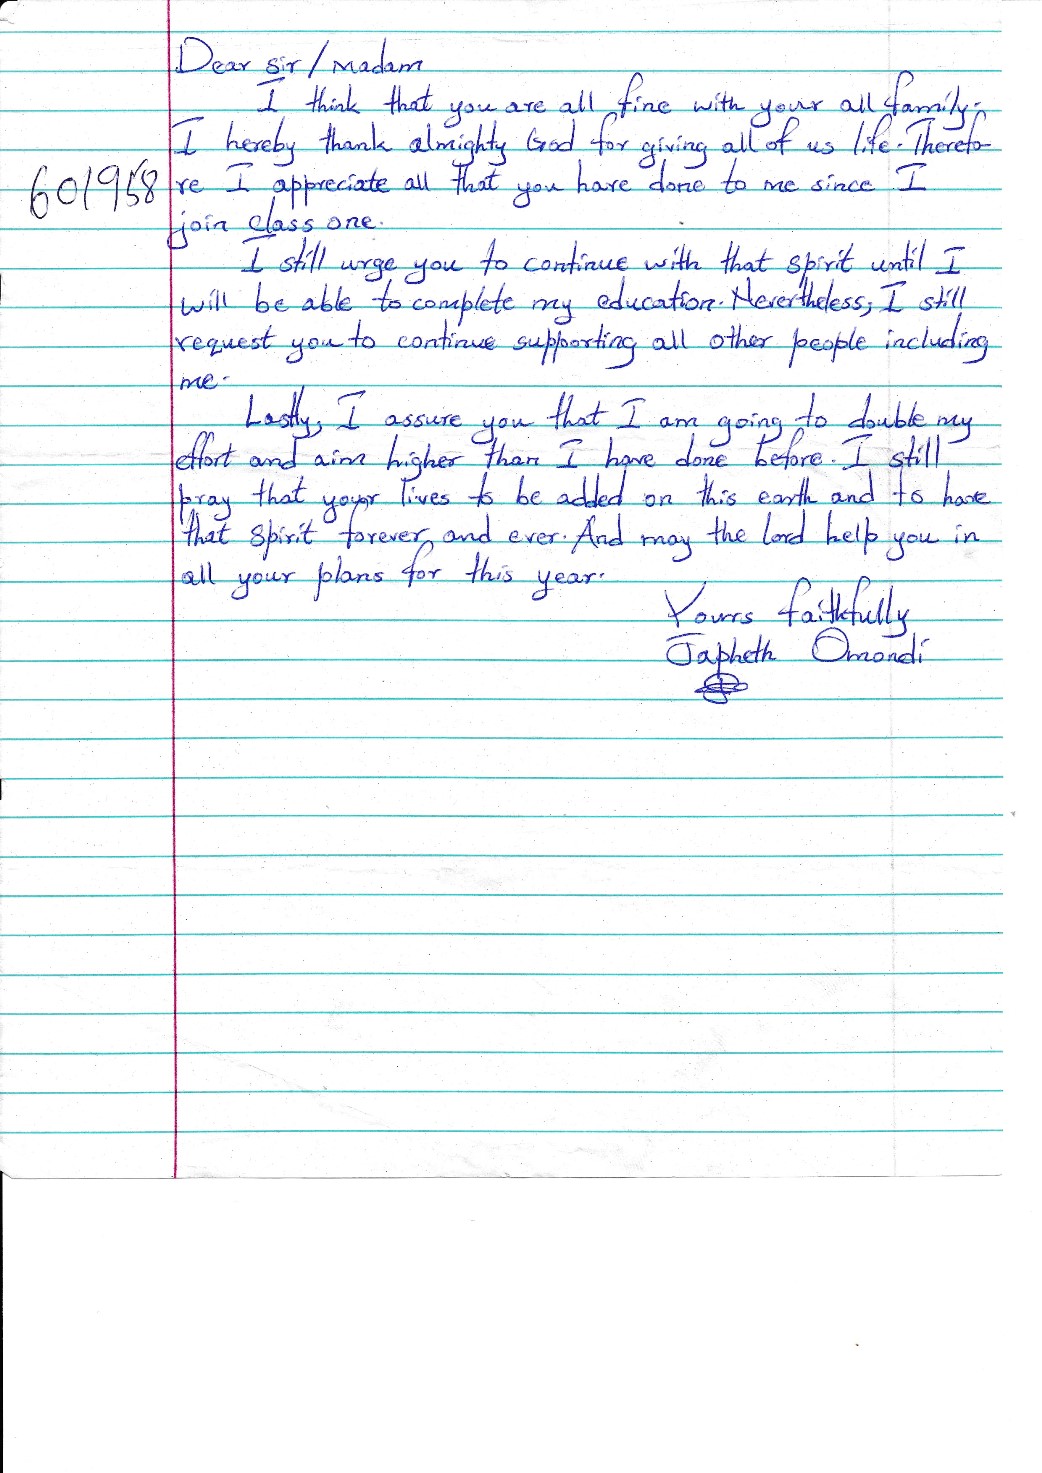 Dear Sir/Madam
I think that you are all fine with your all family.
I hereby thank almighty God for giving all of us life. Therefo
601958
re I appreciate all that you have done to me since I
join class one.
I still urge you to continue with that spirit until I
will be able to complete my education. Nevertheless, I still
request you to continue supporting all other people including
me.
Lastly, I assure you that I am going to double my
effort and aim higher than I have done before. I still
pray that your lives to be added on this earth and to have
that spirit forever and ever. And may the lord help you in
all your plans for this year.
Yours faithfully
Japheth Omondi